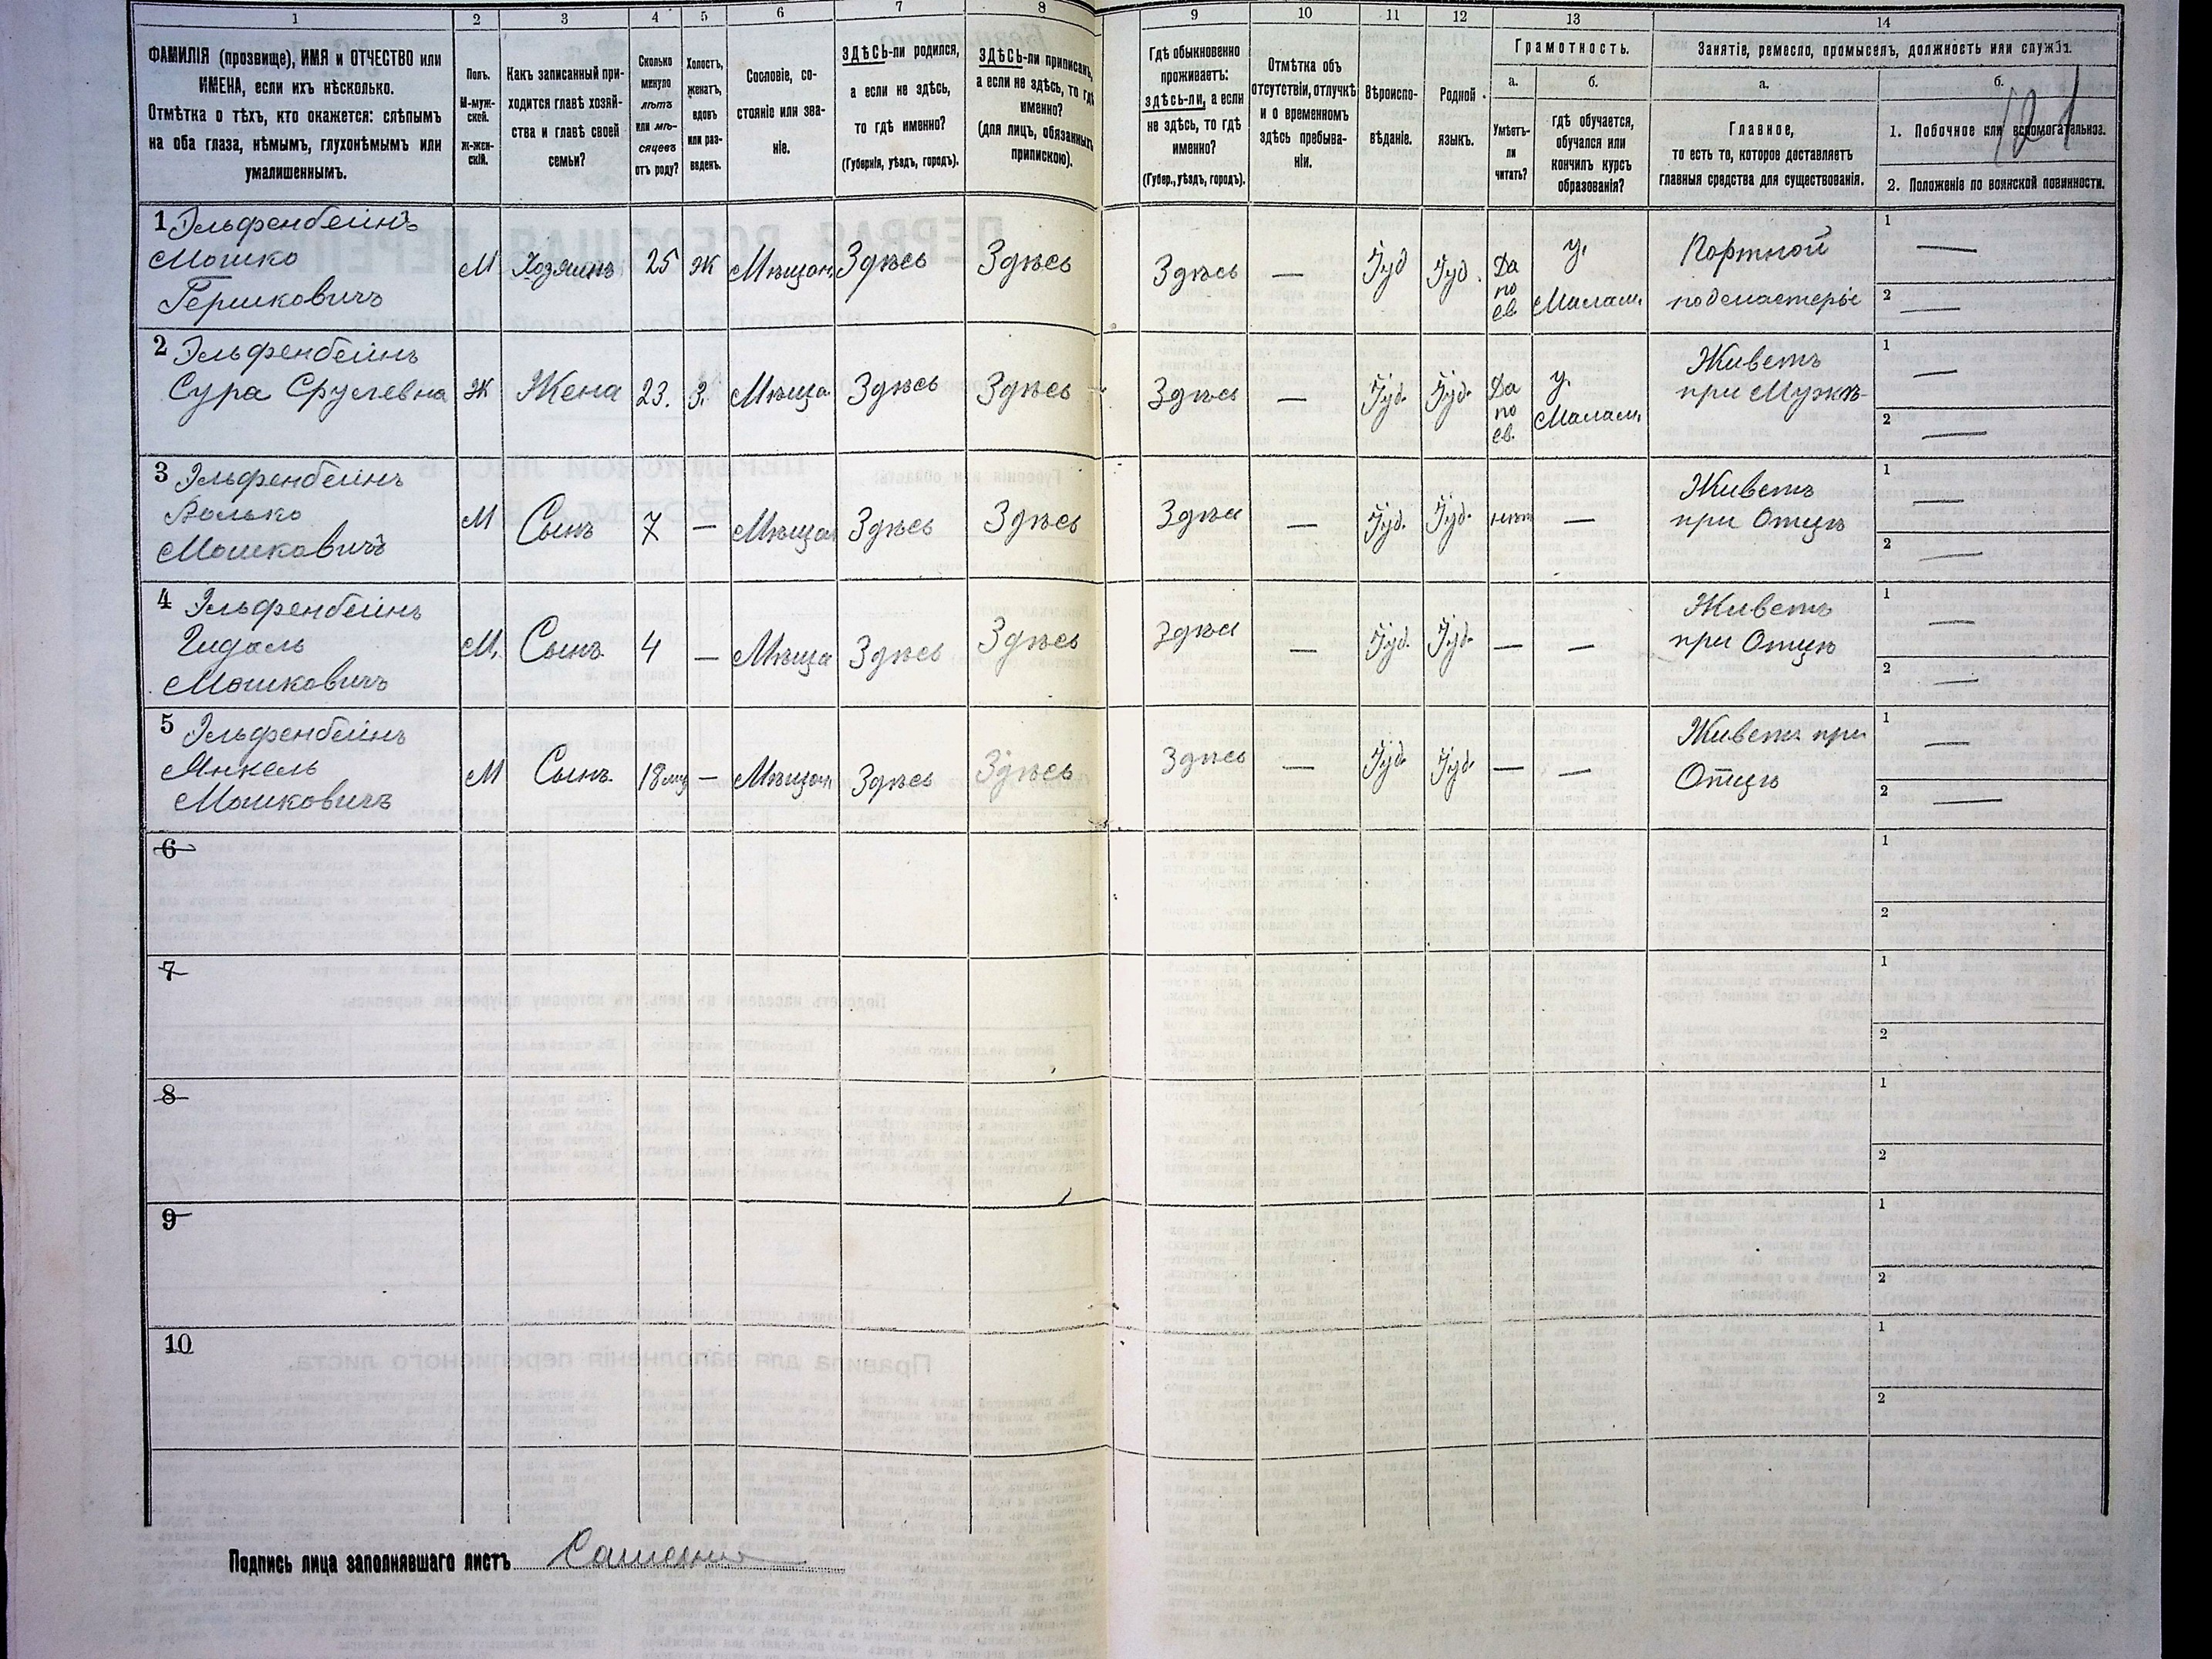 1 2 3 4 5 6 7 8 9 10 11 12 13 14
ФАМИЛІЯ (прозвище), ИМЯ и ОТЧЕСТВО или
ИМЕНА, если ихъ нѣсколько.
Отмѣтка о тѣхъ, кто окажется: слѣпымъ
на оба глаза, нѣмымъ, глухонѣмымъ или
умалишеннымъ.
Полъ.
М-муж-
ской.
Ж-жен-
скій.
Какъ записанный при-
ходится главѣ хозяй-
ства и главѣ своей
семьи?
Сколько
минуло
лѣтъ
или мѣ-
сяцевъ
отъ роду?
Холостъ,
женатъ,
вдовъ
или раз-
веденъ.
Сословіе, со-
стояніе или зва-
ніе.
ЗДѢСЬ-ли родился,
а если не здѣсь,
то гдѣ именно?
(Губернія, уѣздъ, городъ).
ЗДѢСЬ-ли приписанъ,
а если не здѣсь, то гдѣ
именно?
(для лицъ, обязанныхъ
припискою).
Гдѣ обыкновенно
проживаетъ:
здѣсь-ли, а если
не здѣсь, то гдѣ
именно?
(Губер., уѣздъ, городъ).
Отмѣтка объ
отсутствіи, отлучкѣ
и о временномъ
здѣсь пребыва-
ніи.
Вѣроиспо-
вѣданіе.
Родной
языкъ.
Грамотность.
а.
Умѣетъ-
ли
читать?
б.
гдѣ обучается,
обучался или
кончилъ курсъ
образованія?
Занятіе, ремесло, промыселъ, должность или служба.
а.
Главное,
то есть то, которое доставляетъ
главныя средства для существованія.
б.
121
1. Побочное или вспомогательное.
2. Положеніе по воинской повинности.
1 Эльфенбейнъ
Мошко
Гершковичъ
М Хозяинъ 25 Ж Мѣщан Здѣсь Здѣсь Здѣсь — Іуд Іуд.
Да
по
ев
у.
Малам.
Портной
подмастерье
1 —
2 —
2 Эльфенбейнъ
Сура Срулевна
Ж Жена 23. З. Мѣща Здѣсь Здѣсь Здѣсь — Іуд. Іуд.
Да
по
ев.
у.
Малам.
Живетъ
при Мужѣ
1 —
2 —
3 Эльфенбейнъ
Волько
Мошковичъ
М Сынъ 7 — Мѣщан Здѣсь Здѣсь Здѣсь — Іуд. Іуд. нѣтъ —
Живетъ
при Отцѣ
1 —
2 —
4 Эльфенбейнъ
Гидаль
Мошковичъ
М. Сынъ. 4 — Мѣща Здѣсь Здѣсь Здѣсь — Іуд. Іуд. — —
Живетъ
при Отцѣ
1 —
2 —
5 Эльфенбейнъ
Янкель
Мошковичъ
М Сынъ. 18 мц — Мѣщан Здѣсь Здѣсь Здѣсь — Іуд. Іуд. — —
Живетъ при
Отцѣ
1 —
2 —
6
1
2
7
1
2
8
1
2
9
1
2
10
1
2
Подпись лица заполнявшаго листъ